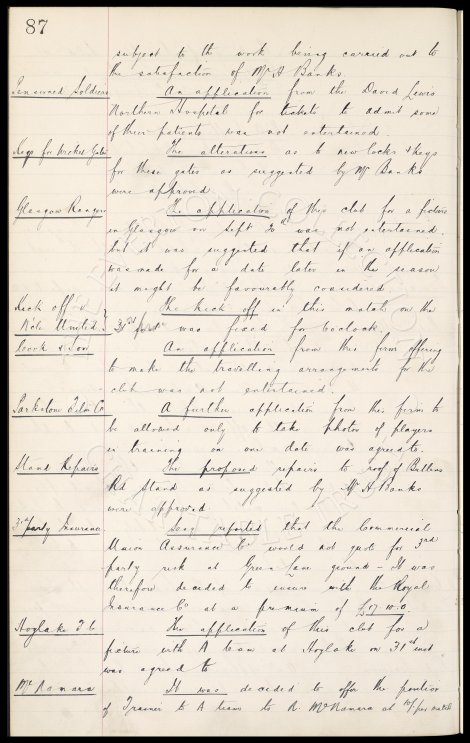 87
subject to the work being carried out to
the satisfaction of Mr A Banks.
Pensioned Soldiers An application from the David Lewis
Northern Hospital for tickets to admit some
of their patients was not entertained.
Keys for Wicket Gates The alterations as to new locks & keys
for these gates as suggested by Mr Banks
were approved
Glasgow Rangers The application of this club for a fixture
in Glasgow on Sept 30th was not entertained
but it was suggested that if an application
was made for a date later in the season
it might be favourably considered
Kick off v The kick off in this match on the
N'cle United 31st was fixed for 6 oclock.
Cook & Son An application from this firm offering
to make the travelling arrangements for the
club was not entertained.
Parkstone Film Co A further application from this firm to
be allowed only to take photos of players
in training on one date was agreed to.
Stand Repairs The proposed repairs to roof of Bullens
Rd Stand as suggested by Mr A Banks
were approved
3rd party Insurance Secy reported that the Commercial
Union Assurance Co would not quote for 3rd
party risk at Green Lane ground - It was
therefore decided to insure with the Royal
Insurance Co at a premium of
Hoylake F C The application of this club for a
fixture with A team at Hoylake on 31st inst
was agreed to
McNamara It was decided to offer the position
of Trainer to A team to R. McNamara at 10/ per match